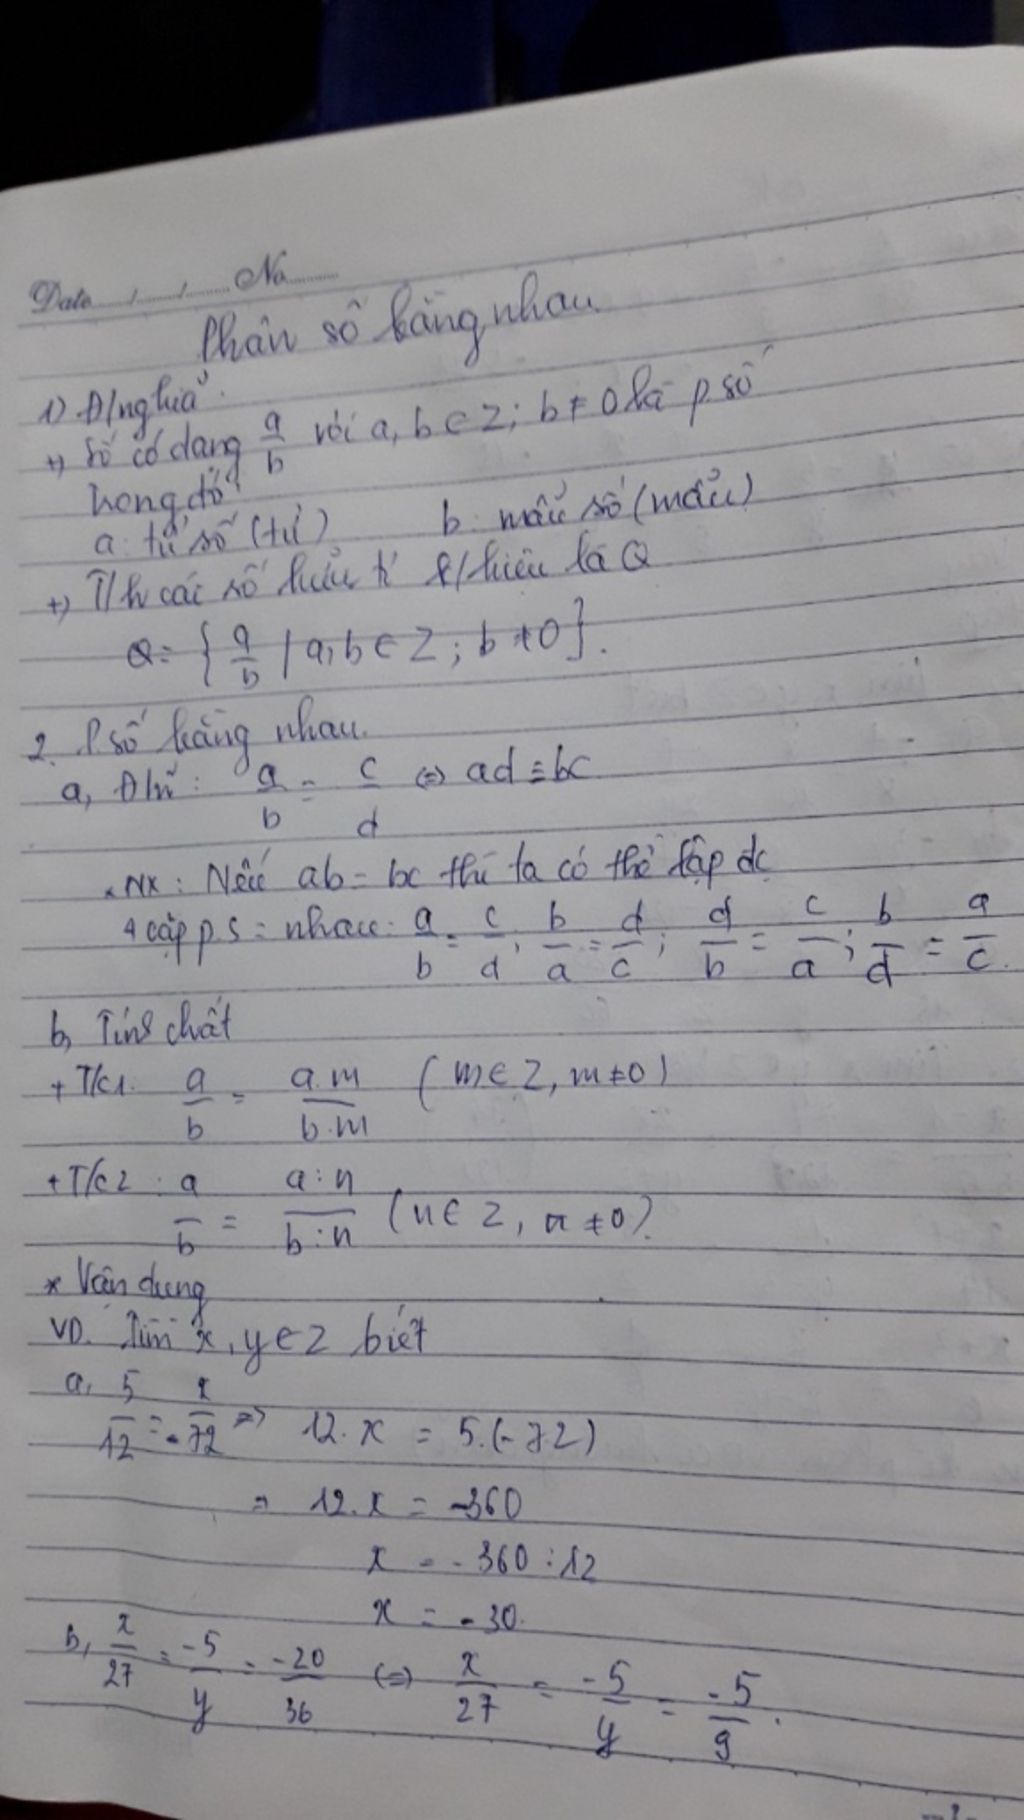 Date ...../...../........ No...........
Phân số bằng nhau
1) Đ/nghĩa:
+) Số có dạng a/b với a, b ∈ Z; b ≠ 0 là p.số
trong đó:
a: tử số (tử) b: mẫu số (mẫu)
+) T/h các số hữu tỉ k/hiệu là Q
Q = { a/b | a, b ∈ Z; b ≠ 0 }.
2. P.số bằng nhau.
a, Đ/n: a/b = c/d ⇔ ad = bc
*NX: Nếu ab = bc thì ta có thể lập đc
4 cặp p.s = nhau: a/b = c/d; b/a = d/c; d/b = c/a; b/d = a/c.
b, Tính chất
+ T/c1. a/b = a.m/b.m (m ∈ Z, m ≠ 0)
+ T/c2: a/b = a:n/b:n (n ∈ Z, n ≠ 0).
* Vận dụng
VD. Tìm x, y ∈ Z biết
a, 5/12 = x/-72 => 12.x = 5.(-72)
=> 12.x = -360
x = -360 : 12
x = -30.
b, x/27 = -5/y = -20/36 (=>) x/27 = -5/y = -5/9.